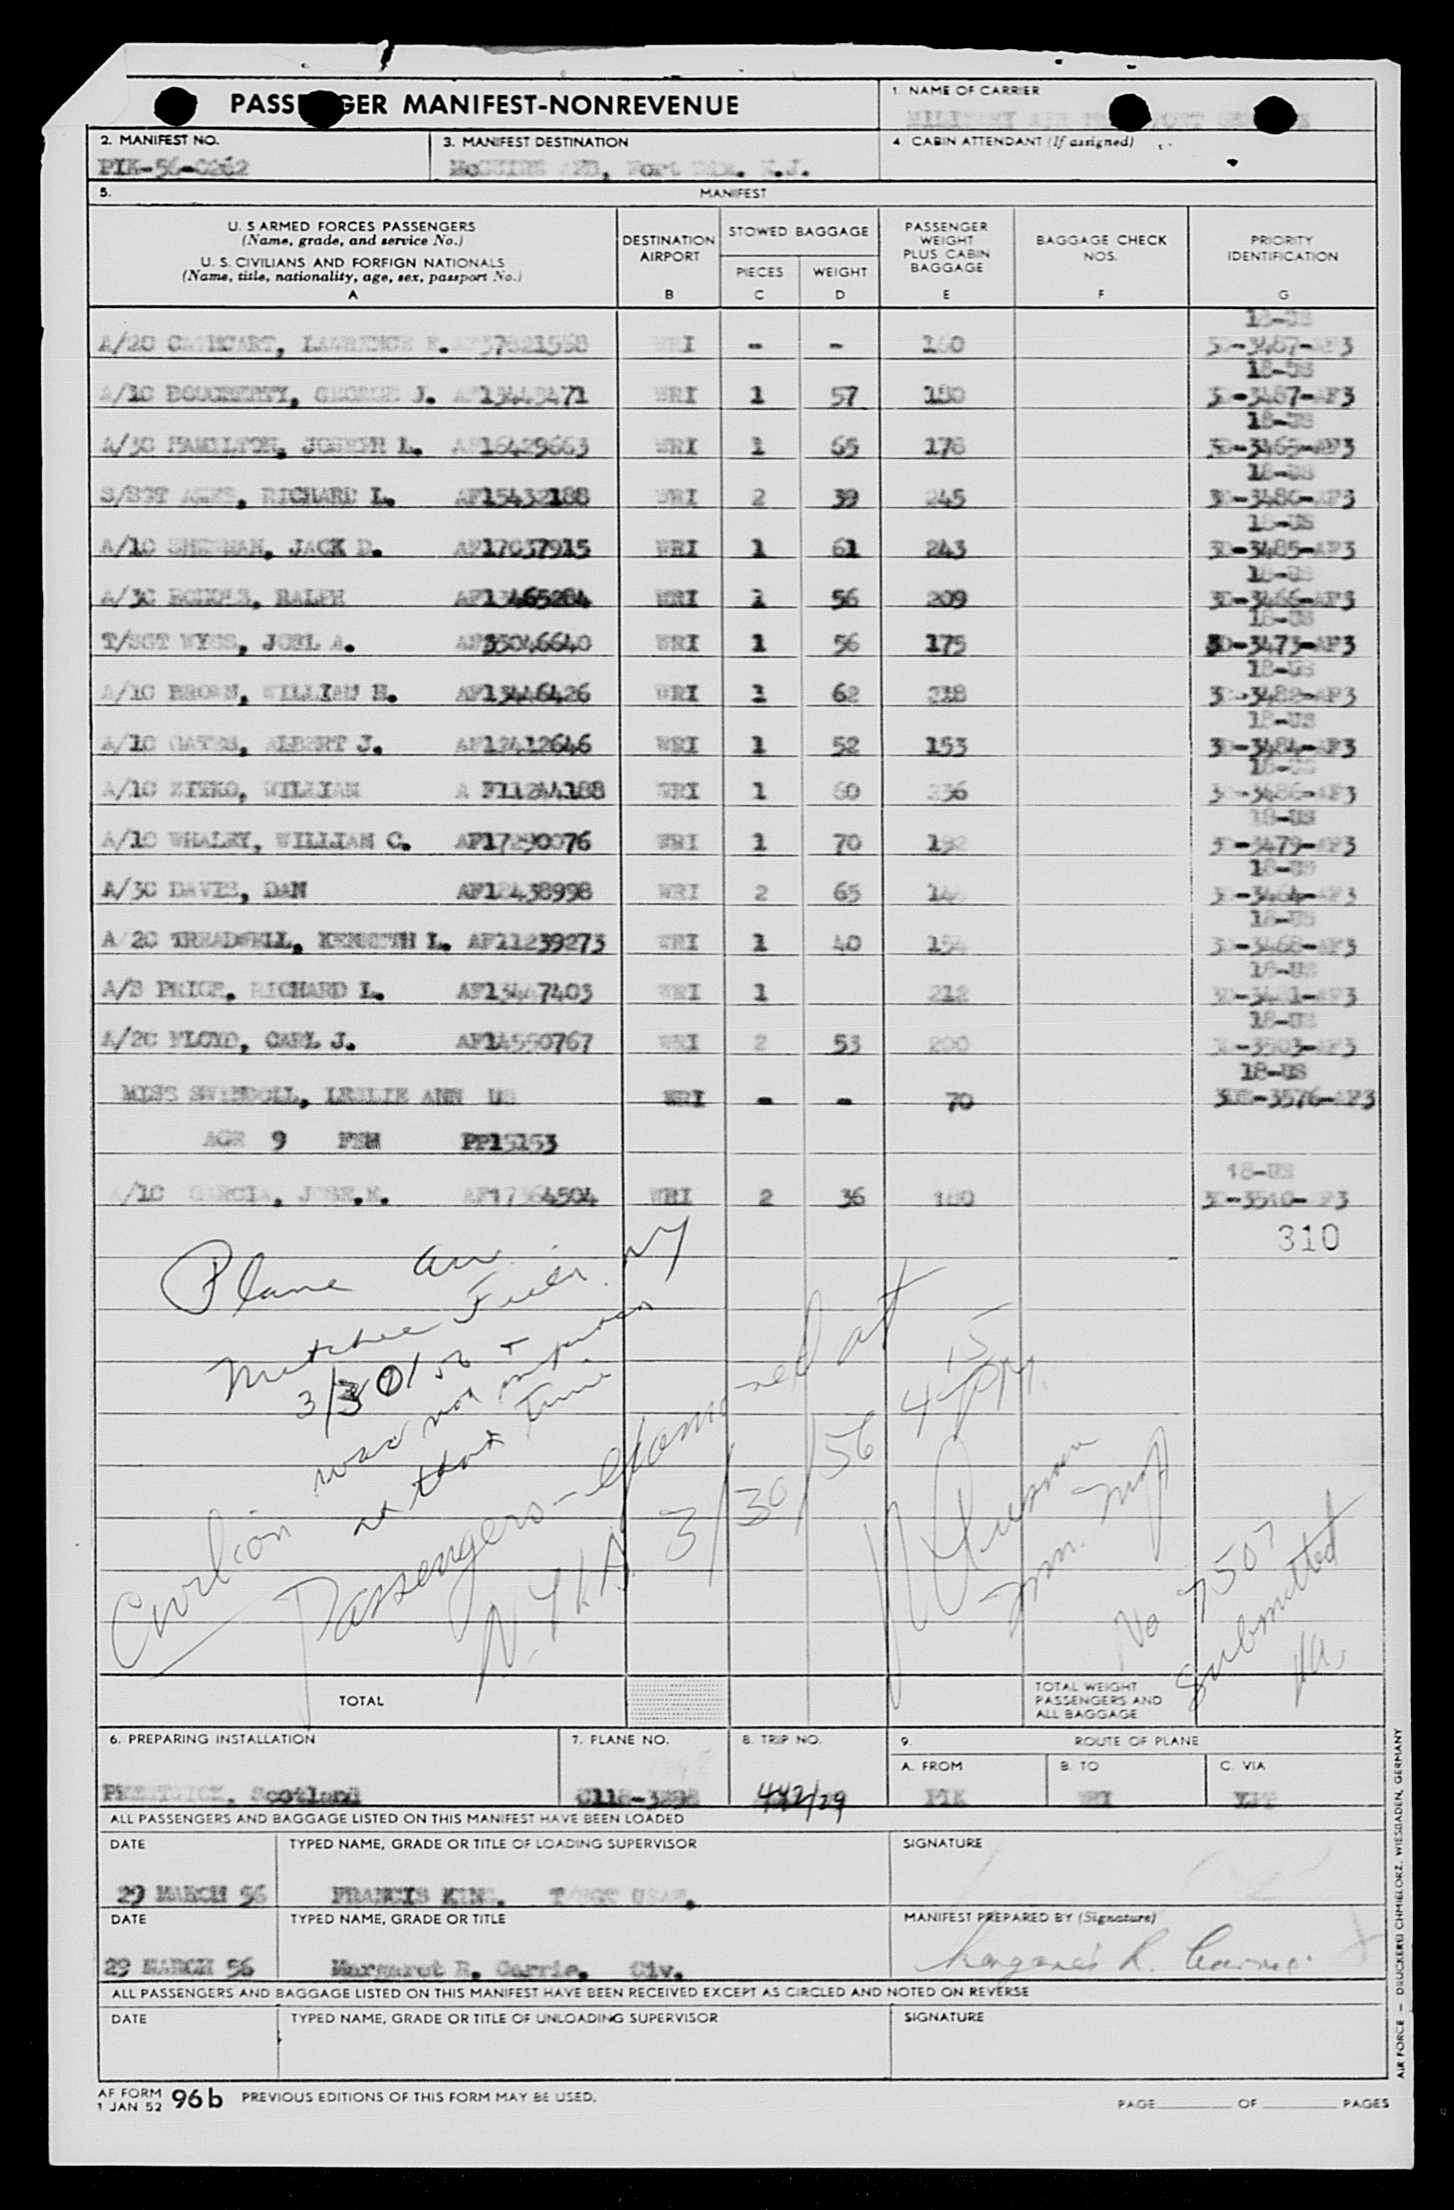 PASSENGER MANIFEST-NONREVENUE
1. NAME OF CARRIER
MILITARY AIR TRANSPORT SERVICE
2. MANIFEST NO.
PIK-56-0262
3. MANIFEST DESTINATION
McGUIRE AFB, Fort Dix. N.J.
4. CABIN ATTENDANT (If assigned)
5. MANIFEST
U. S ARMED FORCES PASSENGERS
(Name, grade, and service No.)
U. S. CIVILIANS AND FOREIGN NATIONALS
(Name, title, nationality, age, sex, passport No.)
A
DESTINATION AIRPORT
B
STOWED BAGGAGE
PIECES
C
WEIGHT
D
PASSENGER WEIGHT PLUS CABIN BAGGAGE
E
BAGGAGE CHECK NOS.
F
PRIORITY IDENTIFICATION
G
18-US
A/2C CATHCART, LAWRENCE R. AF37821568 WRI - - 160 3D-3467-AF3
18-US
A/1C DOUGHERTY, GEORGE J. AF13443471 WRI 1 57 180 3D-3487-AF3
18-US
A/3C HAMILTON, JOSEPH L. AF16429663 WRI 1 65 178 3D-3465-AF3
18-US
S/SGT RICHARD L. AF15432188 WRI 2 39 245 3D-3480-AF3
18-US
A/1C SHERMAN, JACK D. AF17037915 WRI 1 61 243 3D-3485-AF3
18-US
A/3C RALPH AF13465284 WRI 1 56 209 3D-3466-AF3
18-US
T/SGT WYSS, JOEL A. AF35046640 WRI 1 56 175 3D-3473-AF3
18-US
A/1C BROWN, WILLIAM H. AF13446426 WRI 1 62 238 3D-3482-AF3
18-US
A/1C GATES, ALBERT J. AF12412646 WRI 1 52 153 3D-3484-AF3
18-US
A/1C WILLIAM A F11244188 WRI 1 60 236 3D-3486-AF3
18-US
A/1C WHALEY, WILLIAM C. AF17290076 WRI 1 70 192 3D-3479-AF3
18-US
A/3C DAVIS, DAN AF12438998 WRI 2 65 3D-3464-AF3
18-US
A/2C TREADWELL, KENNETH L. AF11239273 WRI 1 40 154 3D-3468-AF3
18-US
A/B PRICE, RICHARD L. AF13447403 WRI 1 212 3D-3481-AF3
18-US
A/2C FLOYD, CARL J. AF14550767 WRI 2 53 200 3D-3503-AF3
18-US
MISS SWINDOLL, LESLIE ANN US WRI - - 70 3DD-3576-AF3
AGE 9 FEM PP15153
18-US
A/1C GARCIA, JOSE.M. AF17364504 WRI 2 36 180 3D-3510-AF3
310
Plane arr.
Mitchel Field. NY
3/30/56 +
was not inspected
at that time
Civilion Passengers - examined at
N.Y.I.A. 3/30/56 4 15 P.M.
Imm. Insp
No 7507
Submitted
TOTAL
TOTAL WEIGHT PASSENGERS AND ALL BAGGAGE
6. PREPARING INSTALLATION
PRESTWICK, Scotland
7. PLANE NO.
C118-3298
8. TRIP NO.
442/29
9. ROUTE OF PLANE
A. FROM
PIK
B. TO
WRI
C. VIA
ALL PASSENGERS AND BAGGAGE LISTED ON THIS MANIFEST HAVE BEEN LOADED
DATE
29 MARCH 56
TYPED NAME, GRADE OR TITLE OF LOADING SUPERVISOR
FRANCIS KING. T/SGT USAF.
SIGNATURE
DATE
29 MARCH 56
TYPED NAME, GRADE OR TITLE
Margaret R. Carrie. Civ.
MANIFEST PREPARED BY (Signature)
Margaret R. Carrie.
ALL PASSENGERS AND BAGGAGE LISTED ON THIS MANIFEST HAVE BEEN RECEIVED EXCEPT AS CIRCLED AND NOTED ON REVERSE
DATE
TYPED NAME, GRADE OR TITLE OF UNLOADING SUPERVISOR
SIGNATURE
AF FORM 1 JAN 52 96b PREVIOUS EDITIONS OF THIS FORM MAY BE USED.
PAGE OF PAGES
AIR FORCE - DRUCKEREI CHMIELORZ, WIESBADEN, GERMANY